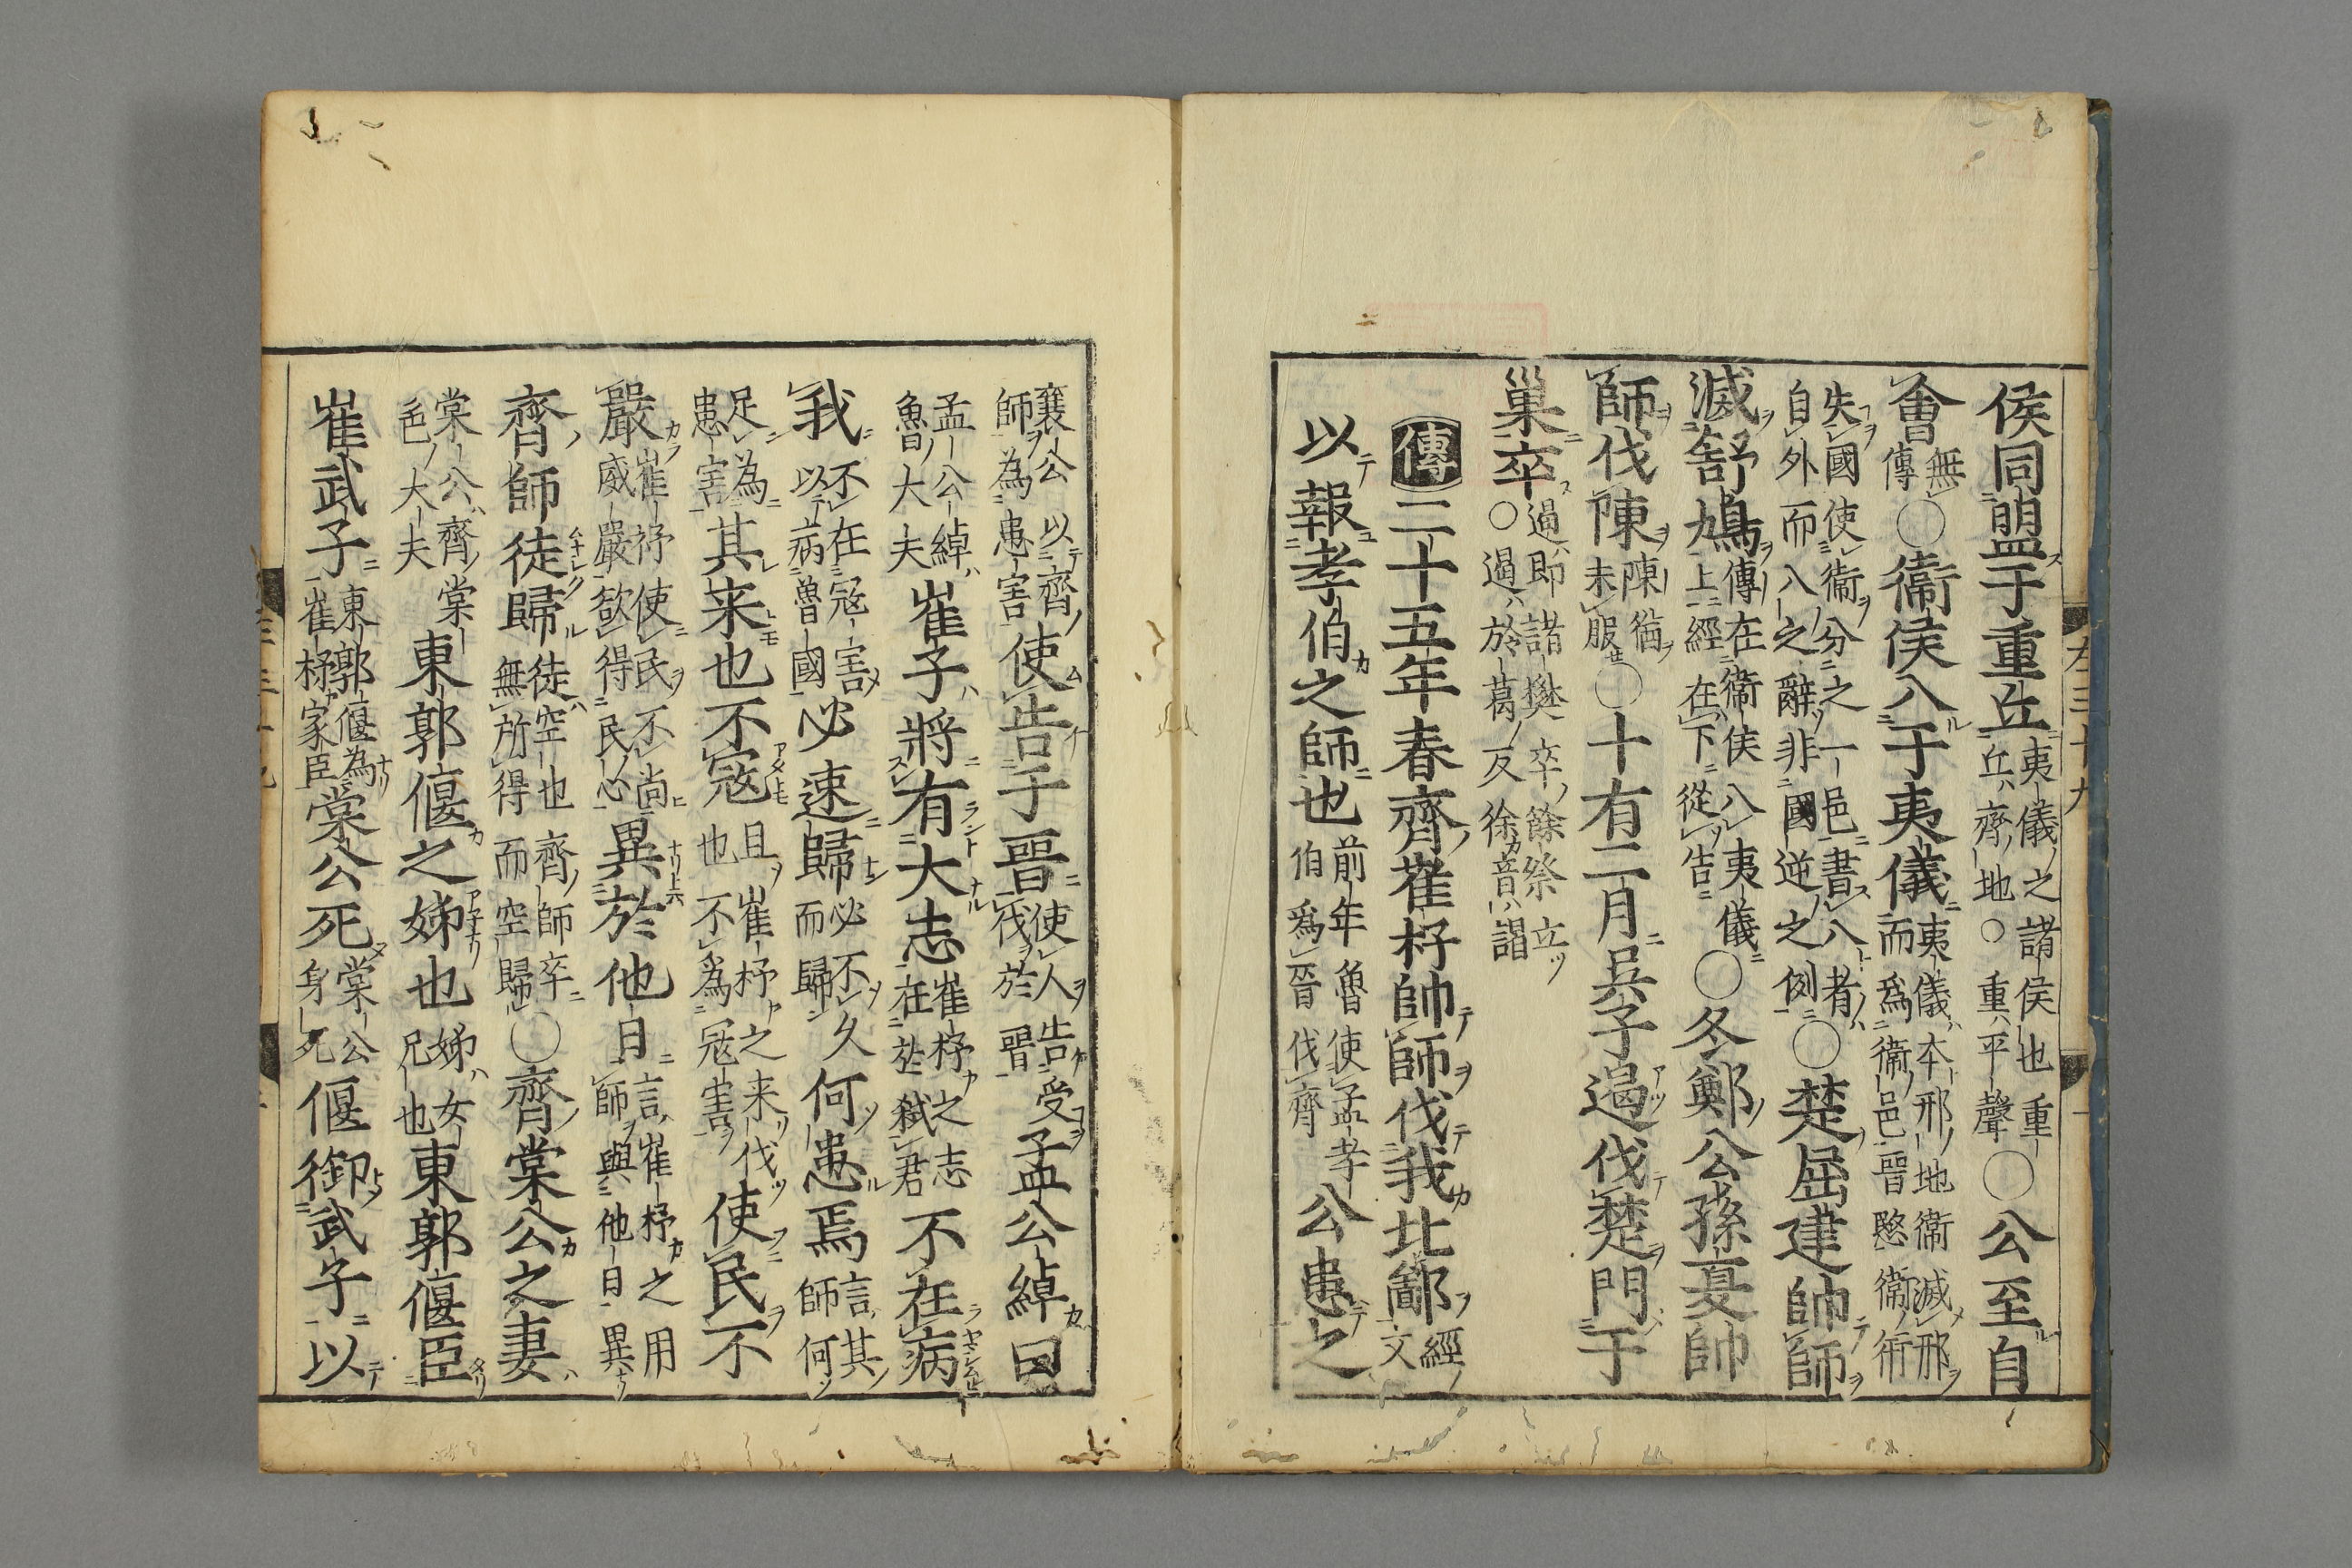 侯同盟于重丘夷儀之諸侯也重丘齊地○重平聲○公至自
會無傳○衞侯入于夷儀夷儀本邢地衞滅邢而爲衞邑晉愍衞衎
失國使衞分之一邑書入者自外而入之辭非國逆之例○楚屈建帥師
滅舒鳩傳在衞侯入夷儀上經在下從告○冬鄭公孫夏帥
師伐陳陳猶未服○十有二月吳子遏伐楚門于
巢卒遏即諸樊卒餘祭立○遏於葛反徐音謁
傳二十五年春齊崔杼帥師伐我北鄙經文
以報孝伯之師也前年魯使孟孝伯爲晉伐齊公患之
襄公以齊師為患害使告于晉使人告伐於晉受孟公綽曰
孟公綽魯大夫崔子將有大志崔杼之志在弑君不在病
我不在寇害以病魯國必速歸必不久而歸何患焉言其師何
足為患害其来也不寇且崔杼之来伐也不爲寇害使民不
嚴崔杼使民不尚威嚴欲得民心異於他日言崔杼之用師與他日異
齊師徒歸徒空也齊師卒無所得而空歸○齊棠公之妻
棠公齊棠邑大夫東郭偃之姊也姊女兄也東郭偃臣
崔武子東郭偃為崔杼家臣棠公死棠公身死偃御武子以
左三十九